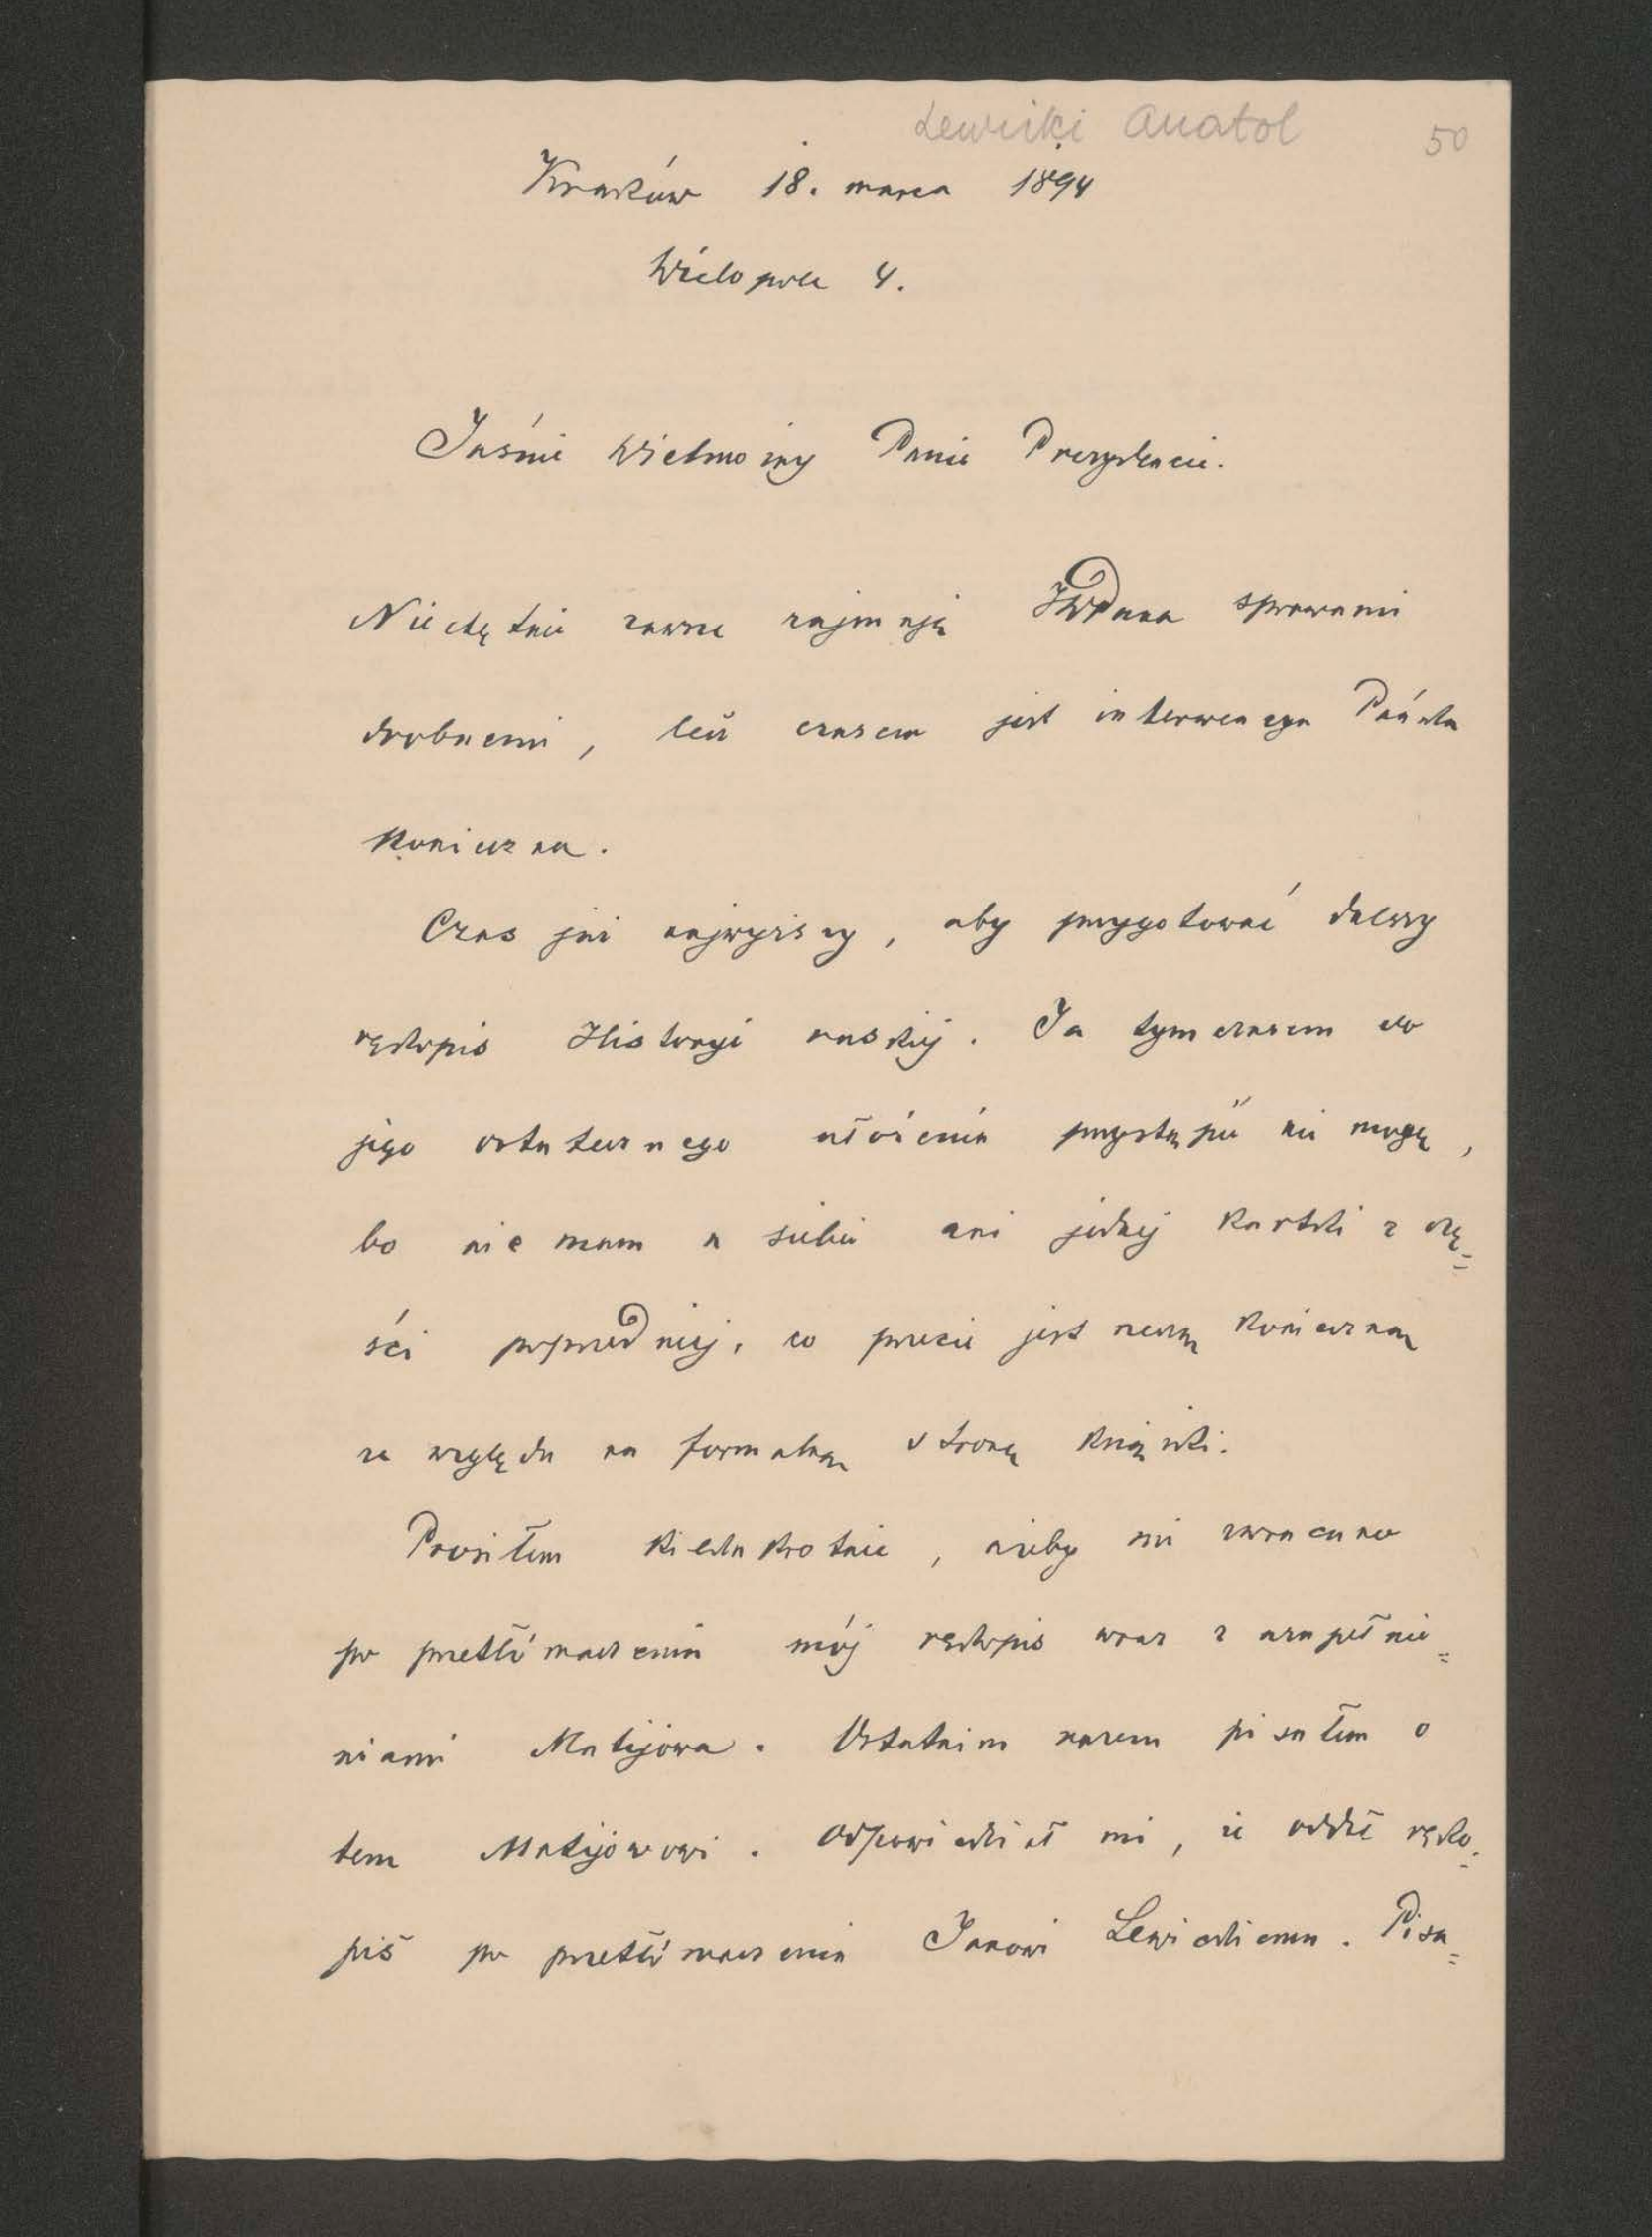 Lewicki Anatol 50
Kraków 18. marca 1894
Wielopole 4.
Jaśnie Wielmożny Panie Prezydencie.
Niechętnie zawsze zajmuję JWPana sprawami
drobnemi, lecz czasem jest interwencya Pańska
konieczna.
Czas już najwyższy, aby przygotować dalszy
rękopis Historyi ruskiej. Ja tymczasem do
jego ostatecznego ułożenia przystąpić nie mogę,
bo nie mam u siebie ani jednej kartki z czę=
ści poprzedniej, co przecie jest rzeczą konieczną
ze względu na formalną stronę książki.
Prosiłem kilkakrotnie, ażeby mi zwracano
po przetłómaczeniu mój rękopis wraz z uzupełnie=
niami Matijowa. Ostatnim razem pisałem o
tem Matijowowi. Odpowiedział mi, że oddał ręko=
pis po przetłómaczeniu Janowi Lewickiemu. Pisa=